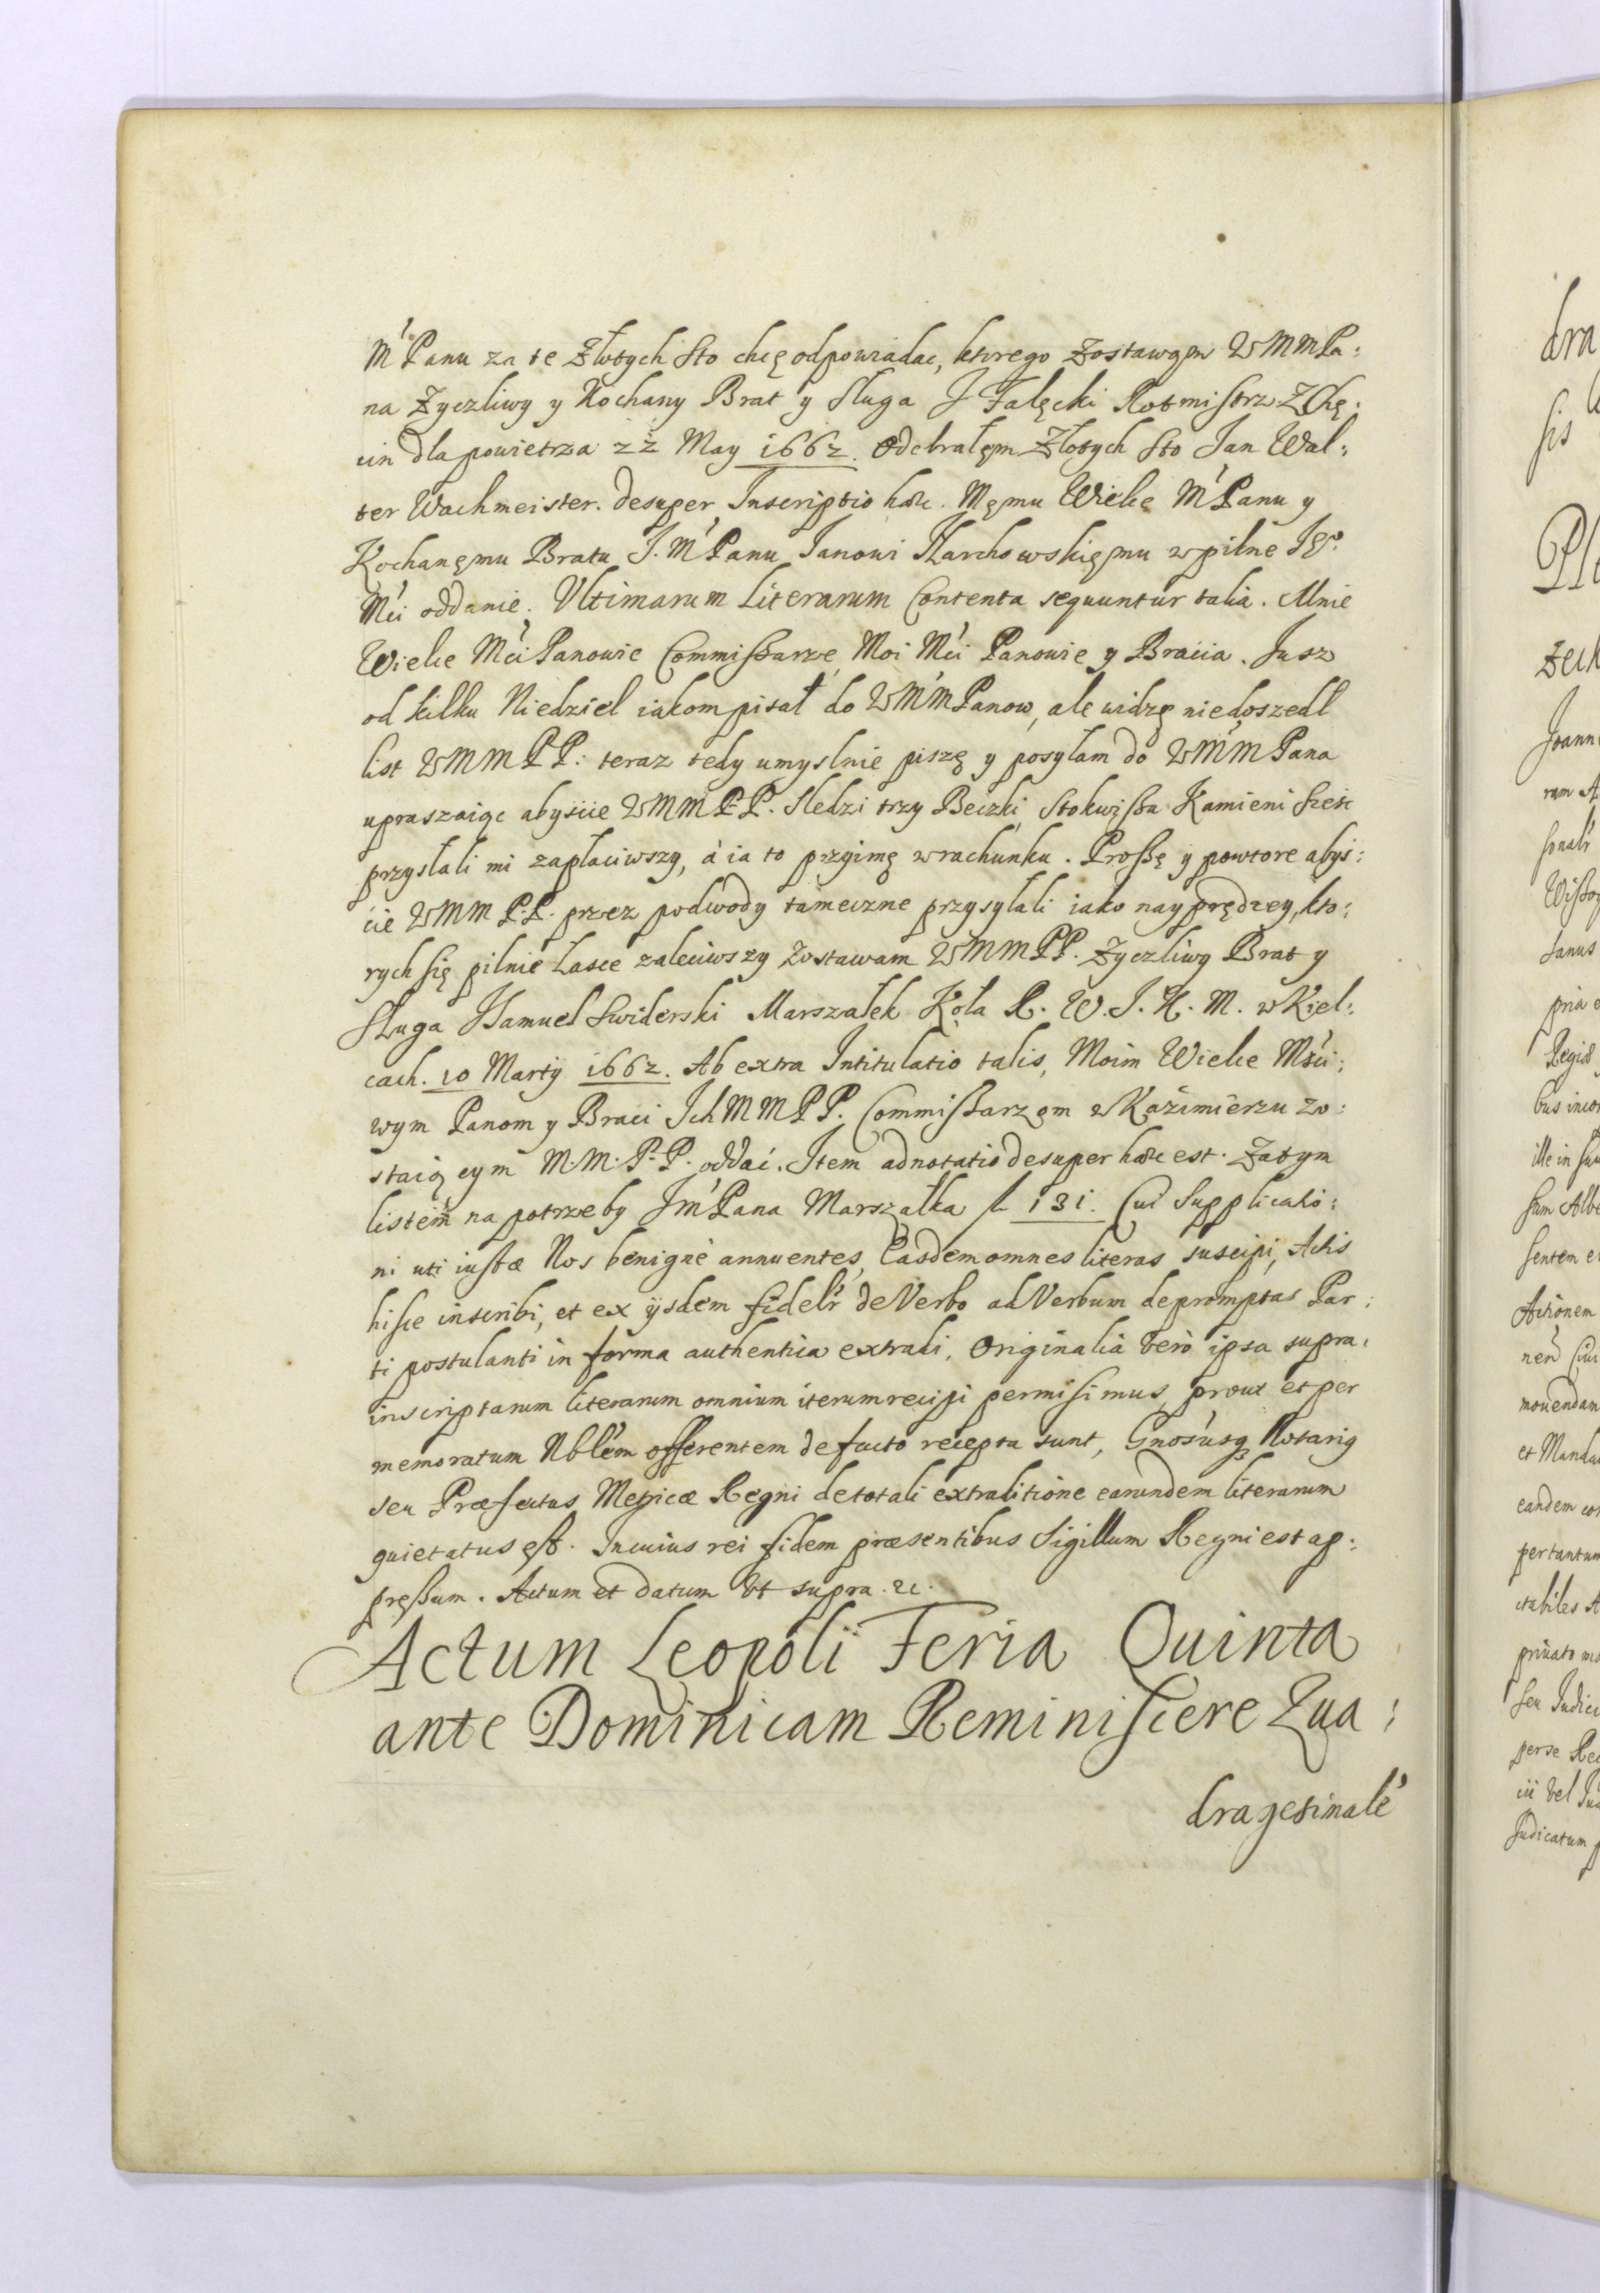 M' Panu za te Złotych Sto chcę odpowiadac, ktorego zostawąm WMMPa:
na Zyczliwy y Kochany Brat y Sluga J Falęcki Rotmistrz Z Chę:
cin dla powietrza 22 May 1662. Odebrałęm Złotych Sto Jan Wal:
ter Wachmeister. desuper Inscriptio hæc. Męmu Wielcę M' Panu y
Kochanęmu Bratu J. M' Panu Janowi Karchowskięmu w pilne Jęo
Mći oddanie. Vltimarum Literarum Contenta sequuntur talia. Mnie
Wielce Mći Panowie Commissarze Moi Mći Panowie y Bracia. Jusz
od kilku Niedziel iakom pisał do WM'MPanow, ale widzę niedoszedł
list WMMPP: teraz tedy umyslnie piszę y posyłam do WM'M Pana
upraszaiąc abyscie WMMP.P. Sledzi trzy Beczki Stokwissu Kamieni sześć
przysłali mi zapłaciwszy, á ia to przyimę w rachunku. Prossę y powtore abys:
cie WMM P.P. przez podwody tameczne przysyłali iako nayprędzey, kto:
rych się pilnie Łasce zaleciwszy zostawam WMMPP. Zyczliwy Brat y
Sługa Samuel Swiderski Marszałek Koła R. W. J. K. M. w Kiel:
cach. 10 Martÿ 1662. Ab extra Intitulatio talis, Moim Wielce Mści:
wym Panom y Braci Jch MMPP. Commissarzom w Kazimierzu zo:
staiącym M.M.P.P. oddać. Item adnotatio desuper hæc est. Zatym
listem na potrzeby Jm' Pana Marszałka fl 131. Cui Supplicatio:
ni uti iustæ Nos benigne annuentes, Easdem omnes literas suscipi, Actis
hisce inscribi, et ex ÿsdem fidelr' de Verbo ad Verbum depromptas Par:
ti postulanti in forma authentica extradi, Originalia verò ipsa supra:
inscriptarum literarum omnium iterum recipi permisimus, prout et per
memoratum Nblem offerentem de facto recepta sunt, Gnosusq Notariq
seu Præfectus Metricæ Regni de totali extraditione earundem literarum
quietatus est. In cuius rei fidem præsentibus Sigillum Regni est ap:
pressum. Actum et datum Vt supra. &c.
Actum Leopoli Feria Quinta
ante Dominicam Reminiscere Qua:
dragesimale'